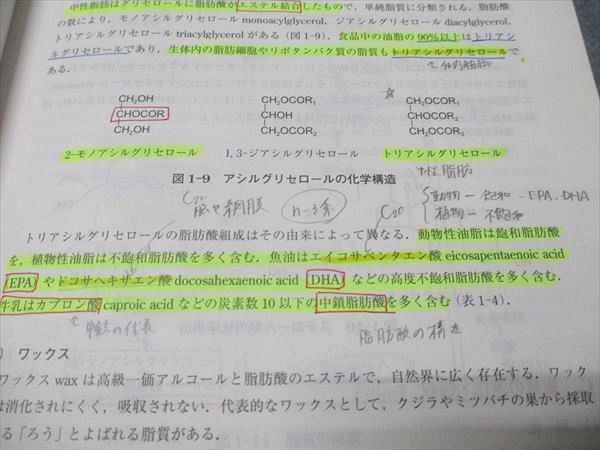 中性脂肪はグリセロールに脂肪酸がエステル結合したもので，単純脂質に分類される．脂肪酸
の数により，モノアシルグリセロール monoacylglycerol，ジアシルグリセロール diacylglycerol,
トリアシルグリセロール triacylglycerol がある（図 1-9）．食品中の油脂の 90％以上はトリアシ
ルグリセロールであり，生体内の脂肪細胞やリポタンパク質の脂質もトリアシルグリセロールで
ある．
CH₂OH CH₂OCOR₁ CH₂OCOR₁
CHOCOR CHOH CHOCOR₂
CH₂OH CH₂OCOR₂ CH₂OCOR₃
2-モノアシルグリセロール 1, 3-ジアシルグリセロール トリアシルグリセロール
中性脂肪
図 1-9 アシルグリセロールの化学構造
動物 ー 飽和 ー EPA. DHA
植物 ー 不飽和
C₂₂
脳や網膜 n-3系 C₂₀
トリアシルグリセロールの脂肪酸組成はその由来によって異なる．動物性油脂は飽和脂肪酸
を，植物性油脂は不飽和脂肪酸を多く含む．魚油はエイコサペンタエン酸 eicosapentaenoic acid
(EPA) やドコサヘキサエン酸 docosahexaenoic acid (DHA) などの高度不飽和脂肪酸を多く含む．
牛乳はカプロン酸 caproic acid などの炭素数 10 以下の中鎖脂肪酸を多く含む（表 1-4）．
中鎖の代表 脂肪酸の構造
) ワックス
ワックス wax は高級一価アルコールと脂肪酸のエステルで，自然界に広く存在する．ワック
は消化されにくく，吸収されない．代表的なワックスとして，クジラやミツバチの巣から採取
る「ろう」とよばれる脂質がある．